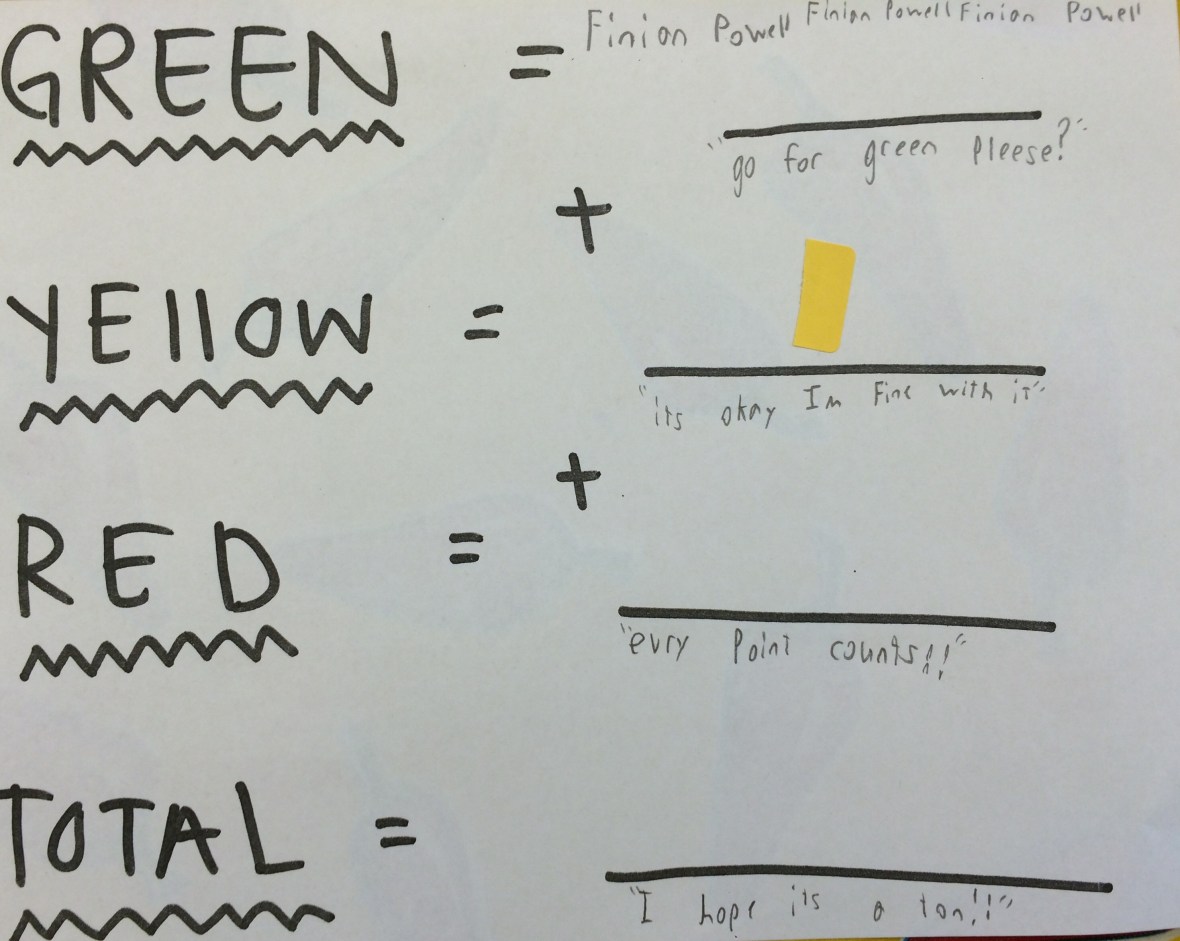 GREEN = Finian Powell Finian Powell Finian Powell
"go for green Pleese?"
+
YEllOW =
"its okay Im Fine with it"
+
RED =
"evry Point counts!!"
TOTAL =
"I hope its a ton!!"